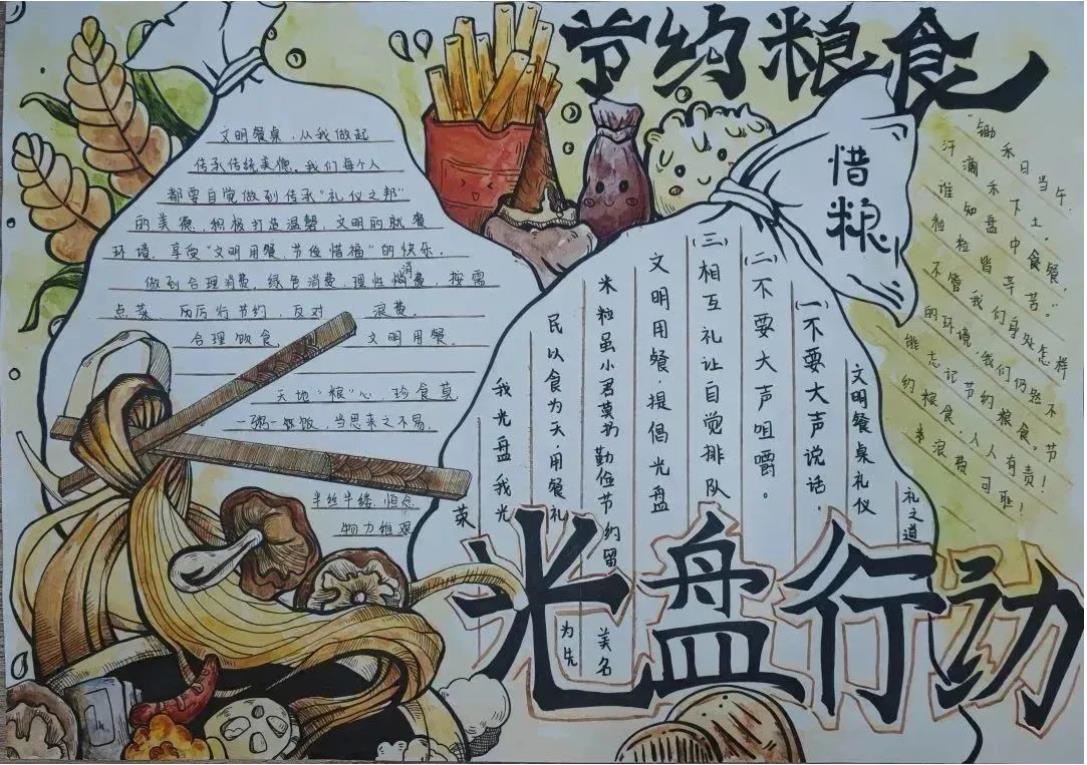 节约粮食
惜粮
文明餐桌,从我做起
传承传统美德。我们每个人
都要自觉做到传承“礼仪之邦”
的美德,积极打造温馨、文明的就餐
环境,享受“文明用餐、节俭惜福”的快乐。
做到合理消费、绿色消费、理性消费,按需
点菜、厉行节约,反对 浪费。
合理饮食, 文明用餐。
天地“粮”心、珍食莫
一粥一饭,当思来之不易。
半丝半缕,恒念
物力维艰
礼之道
文明餐桌礼仪
(一)不要大声说话。
(二)不要大声咀嚼。
(三)相互礼让自觉排队
文明用餐·提倡光盘
米粒虽小君莫扔勤俭节约留美名
民以食为天用餐礼为先
我光盘我光荣
“锄禾日当午,
汗滴禾下土。
谁知盘中食餐,
粒粒皆辛苦。”
不管我们身处怎样
的环境,我们仍然不
能忘记节约粮食。节
约粮食,人人有责!
浪费可耻!
光盘行动